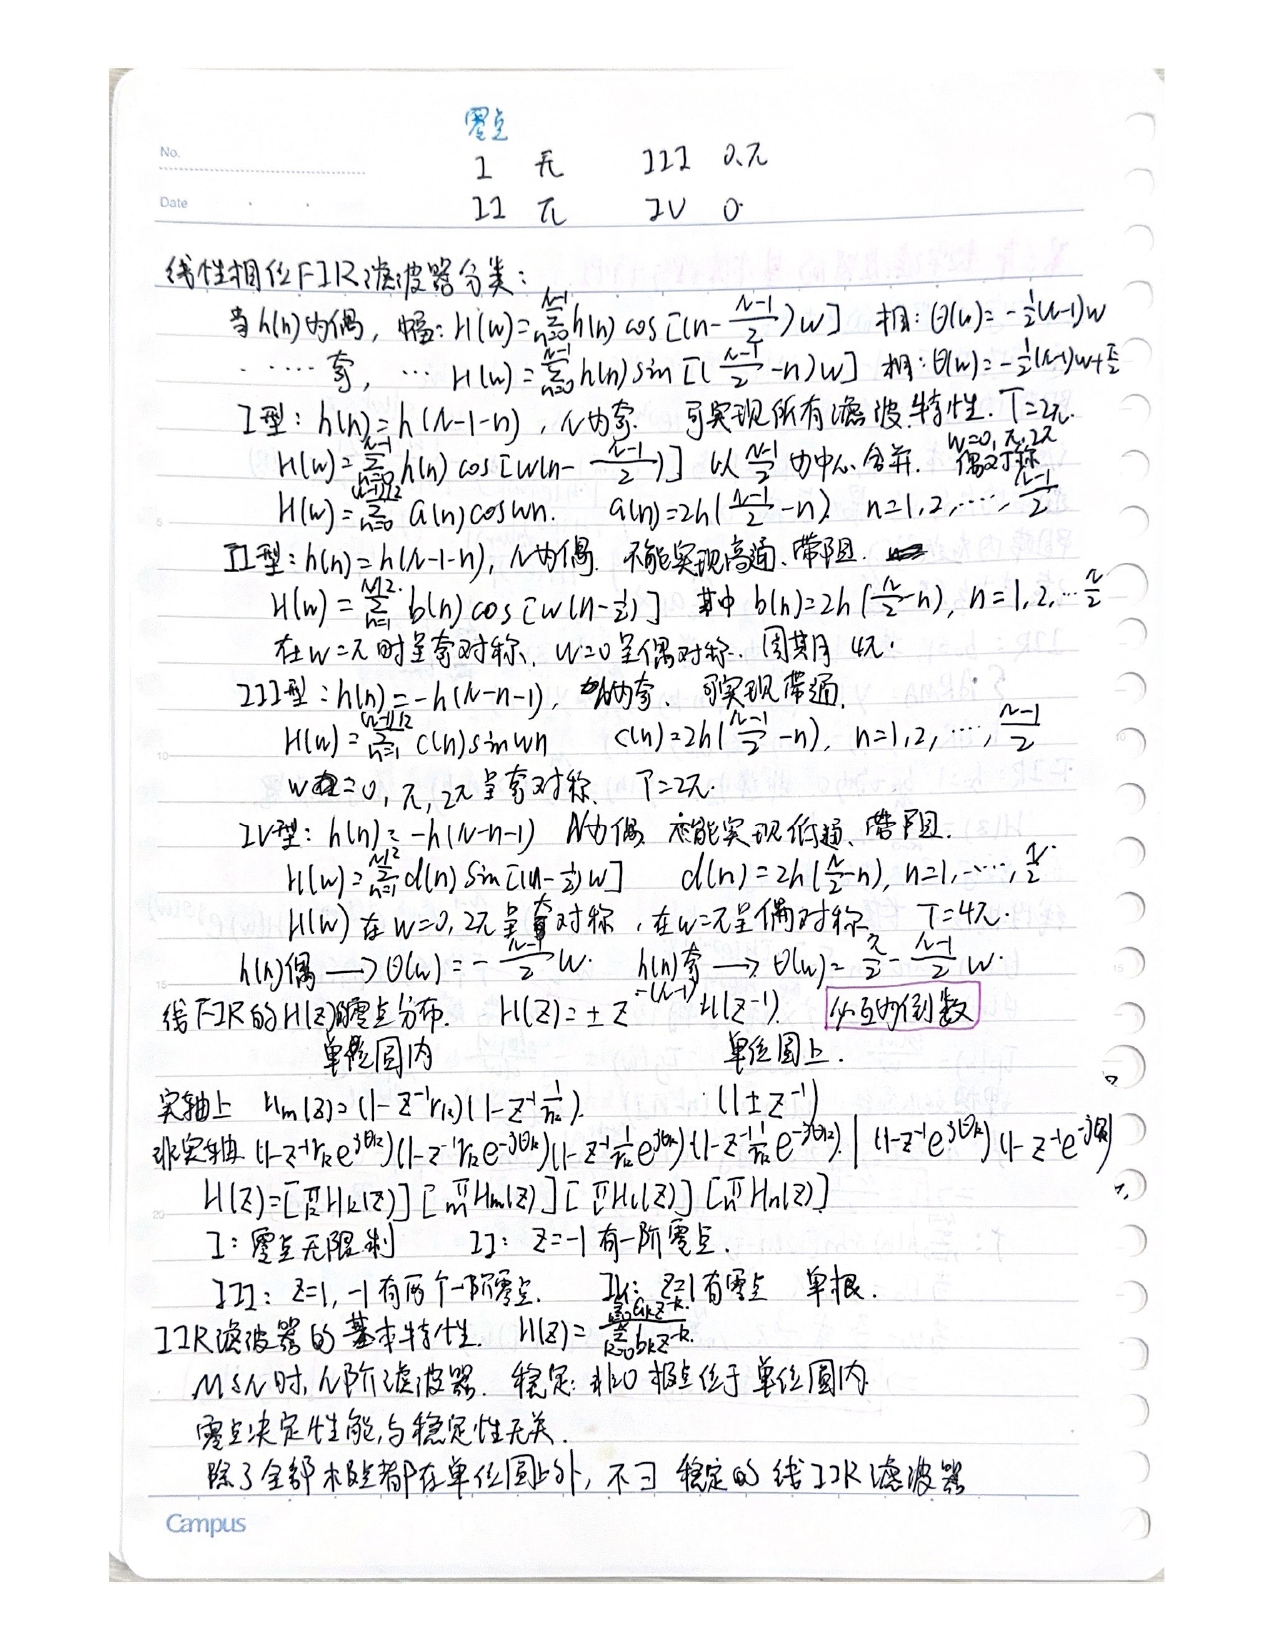 零点
No.
I 无 III 0.π
Date
II π IV 0
线性相位FIR滤波器分类：
当h(n)为偶，幅：H(w)=∑_{n=0}^{N-1}h(n)cos[(n-\frac{N-1}{2})w] 相：θ(w)=-\frac{1}{2}(N-1)w
……奇，… H(w)=∑_{n=0}^{N-1}h(n)sin[(\frac{N-1}{2}-n)w] 相：θ(w)=-\frac{1}{2}(N-1)w+\frac{π}{2}
I型：h(n)=h(N-1-n)，N为奇. 可实现所有滤波特性. T=2π.
w=0，π，2π
H(w)=∑_{n=0}^{N-1}h(n)cos[w(n-\frac{N-1}{2})] 以\frac{N-1}{2}为中心合并. 偶对称
H(w)=∑_{n=0}^{(N-1)/2}a(n)coswn. a(n)=2h(\frac{N-1}{2}-n) n=1,2,…,\frac{N-1}{2}
II型：h(n)=h(N-1-n)，N为偶. 不能实现高通、带阻.
H(w)=∑_{n=1}^{N/2}b(n)cos[w(n-\frac{1}{2})] 其中b(n)=2h(\frac{N}{2}-n)，n=1,2,…\frac{N}{2}
在w=π时呈奇对称，w=0呈偶对称. 周期 4π.
III型：h(n)=-h(N-n-1)，N为奇. 可实现带通.
H(w)=∑_{n=1}^{(N-1)/2}c(n)sinwn c(n)=2h(\frac{N-1}{2}-n)，n=1,2,…,\frac{N-1}{2}
w=0，π，2π呈奇对称. T=2π.
IV型：h(n)=-h(N-n-1) N为偶. 不能实现低通、带阻.
H(w)=∑_{n=1}^{N/2}d(n)sin[(n-\frac{1}{2})w] d(n)=2h(\frac{N}{2}-n)，n=1,…,\frac{N}{2}
H(w)在w=0，2π呈奇对称，在w=π呈偶对称. T=4π.
h(n)偶→θ(w)=-\frac{N-1}{2}w. h(n)奇→θ(w)=\frac{π}{2}-\frac{N-1}{2}w.
线FIR的H(z)的零点分布. H(z)=±z^{-(N-1)}H(z^{-1}). 必互为倒数
单位圆内 单位圆上.
实轴上 Hm(z)=(1-z^{-1}r_k)(1-z^{-1}\frac{1}{r_k}). (1±z^{-1})
非实轴 (1-z^{-1}r_ke^{jθ_k})(1-z^{-1}r_ke^{-jθ_k})(1-z^{-1}\frac{1}{r_k}e^{jθ_k})(1-z^{-1}\frac{1}{r_k}e^{-jθ_k}). | (1-z^{-1}e^{jθ_k})(1-z^{-1}e^{-jθ_k})
H(z)=[∏_kH_k(z)][∏_mH_m(z)][∏_lH_l(z)][∏_nH_n(z)]
I：零点无限制 II：z=-1有一阶零点.
III：z=1，-1有两个一阶零点. IV：z=1有零点 单根.
IIR滤波器的基本特性. H(z)=\frac{∑a_kz^{-k}}{∑_{k=0}b_kz^{-k}}
M≤N时，N阶滤波器. 稳定：非0极点位于单位圆内
零点决定性能，与稳定性无关.
除了全部极点都在单位圆上外，不∃稳定的线IIR滤波器
Campus